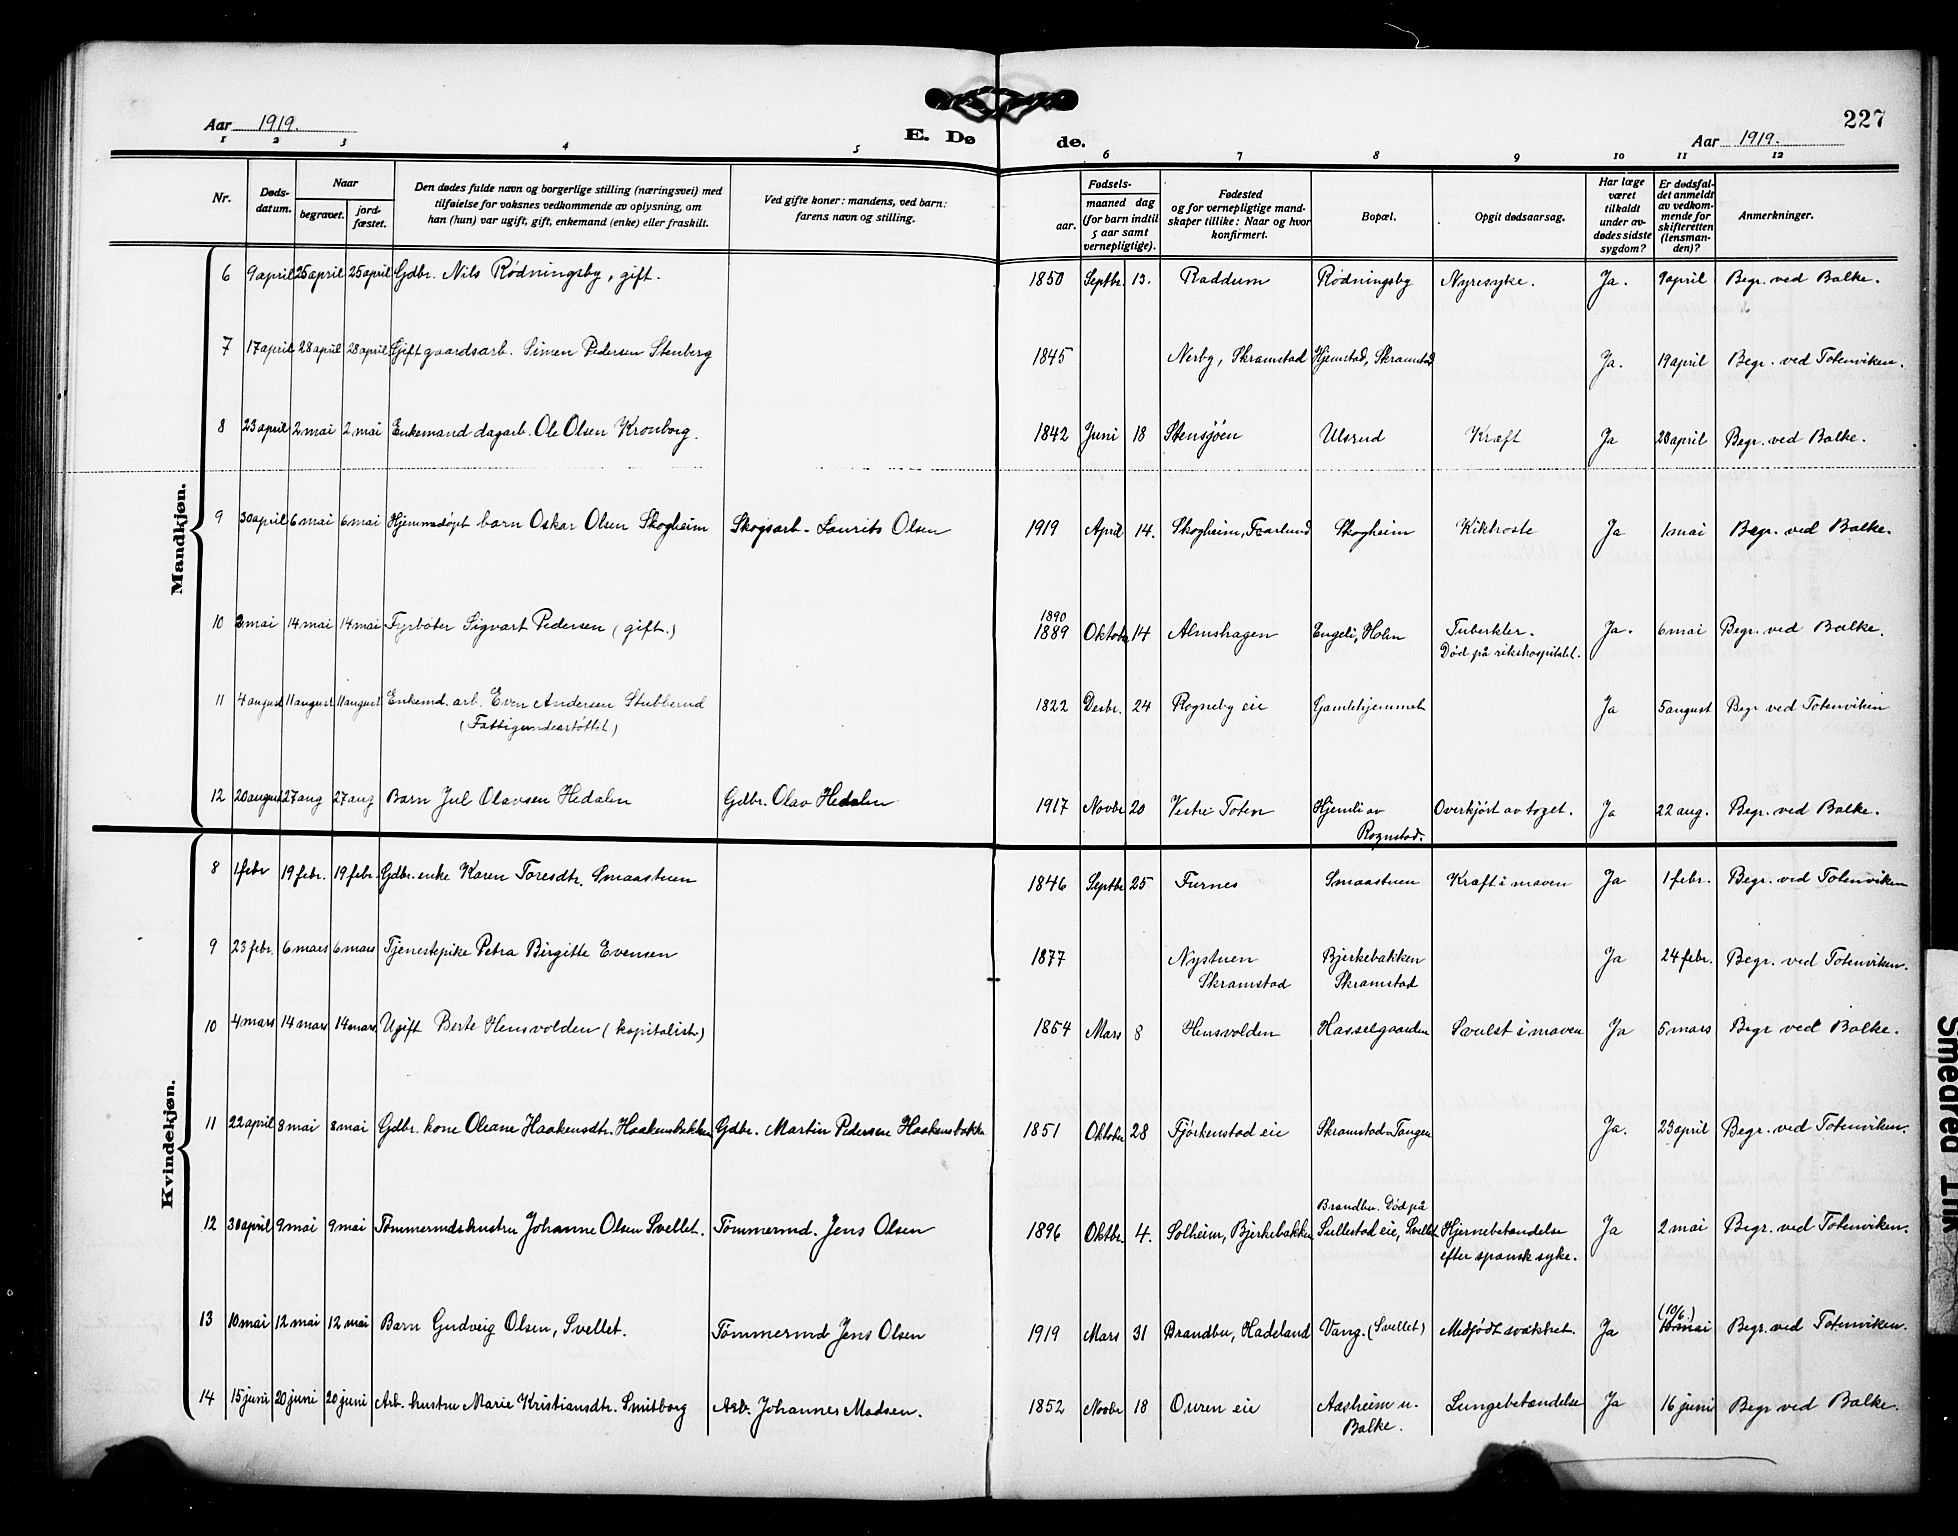 227
Aar 1919.
E. Dø de.
Aar 1919.
1 2 3 4 5 6 7 8 9 10 11 12
Nr.
Døds-
datum.
Naar
begravet.
jord-
fæstet.
Den dødes fulde navn og borgerlige stilling (næringsvei) med
tilføielse for voksnes vedkommende av oplysning, om
han (hun) var ugift, gift, enkemand (enke) eller fraskilt.
Ved gifte koner: mandens, ved barn:
farens navn og stilling.
Fødsels-
aar.
maaned dag
(for barn indtil
5 aar samt
vernepligtige).
Fødested
og for vernepligtige mand-
skaper tillike: Naar og hvor
konfirmert.
Bopæl.
Opgit dødsaarsag.
Har læge
været
tilkaldt
under av-
dødes sidste
sygdom?
Er dødsfal-
det anmeldt
av vedkom-
mende for
skifteretten
(lensman-
den)?
Anmerkninger.
Mandkjøn.
6 9 april 25 april 25 april Gdbr. Nils Rødningsby, gift. 1850 Septbr. 13. Raddum Rødningsby Nyresyke. Ja. 9 april Begr. ved Balke.
7 17 april 28 april 28 april Gift gaardsarb. Simen Pedersen Stenberg 1845 Nerby, Skramstad Hjemstad, Skramstad Ja. 19 april Begr. ved Totenviken.
8 23 april 2 mai 2 mai Enkemand dagarb. Ole Olsen Kronborg. 1842 Juni 18 Stensjøen Ulsrud Kræft Ja 28 april Begr. ved Balke.
9 30 april 6 mai 6 mai Hjemmedøpt barn Oskar Olsen Skogheim Skogsarb. Laurits Olsen 1919 April 14. Skogheim, Faarlund Skogheim Kikhoste Ja 1 mai Begr. ved Balke.
1890
10 mai 14 mai 14 mai Fyrbøter Sigvart Pedersen (gift.) 1889 Oktobr 14 Almshagen Engeli, Holm Tuberkler. Ja. 6 mai Begr. ved Balke.
Død på rikshospitalet.
11 4 august 11 august 11 august Enkemd. arb. Even Andersen Stubberud 1822 Desbr. 24 Rogneby eie Gamlehjemmet Ja 5 august Begr ved Totenviken
(Fattigunderstøttet)
12 20 august 27 aug 27 aug Barn Jul Olavsen Hedalen Gdbr. Olav Hedalen 1917 Novbr 20 Vestre Toten Hjemli av Overkjørt av toget. Ja 22 aug. Begr. ved Balke.
Rognstad.
Kvindekjøn.
8 1 febr 19 febr. 19 febr. Gdbr. enke Karen Toresdtr. Smaastuen 1846 Septbr 25 Furnes Smaastuen Kræft i maven Ja 1 febr. Begr. ved Totenviken
9 23 febr. 6 mars 6 mars Tjenestepike Petra Birgitte Evensen 1877 Nystuen Bjerkebakken Ja 24 febr. Begr. ved Totenviken.
Skramstad Skramstad
10 4 mars 14 mars 14 mars Ugift Berte Hensvolden (kapitalist) 1854 Mars 8 Hensvolden Hasselgaarden Svulst i maven Ja 5 mars Begr ved Balke.
11 22 april 8 mai 8 mai Gdbr. kone Oleane Haakensdtr. Haakensbakken Gdbr. Martin Pedersen Haakensbakke 1851 Oktobr 28 Fjørkenstad eie Skramstad-Tangen Ja. 23 april Begr. ved Totenviken.
Brandbu. Død på
12 30 april 9 mai 9 mai Tømmermdshustru Johanne Olsen Svellet. Tømmermd. Jens Olsen 1896 Oktbr. 4. Solheim, Bjerkebakken Sullestad eie, Svellet Hjernebetændelse Ja 2 mai Begr. ved Totenviken.
efter spansk syke.
(10/6.)
13 10 mai 12 mai 12 mai Barn Gudveig Olsen, Svellet. Tømmermd Jens Olsen 1919 Mars 31 Brandbu, Hadeland Vang. (Svellet) Medfødt svakhet. Ja 10 mai Begr. ved Totenviken.
14 15 juni 20 juni 20 juni Arb. hustru Marie Kristiansdtr. Smitborg Arb. Johannes Madsen. 1852 Novbr 18 Ouren eie Aasheim u. Lungebetændelse Ja 16 juni Begr ved Balke.
Balke.
Smedred